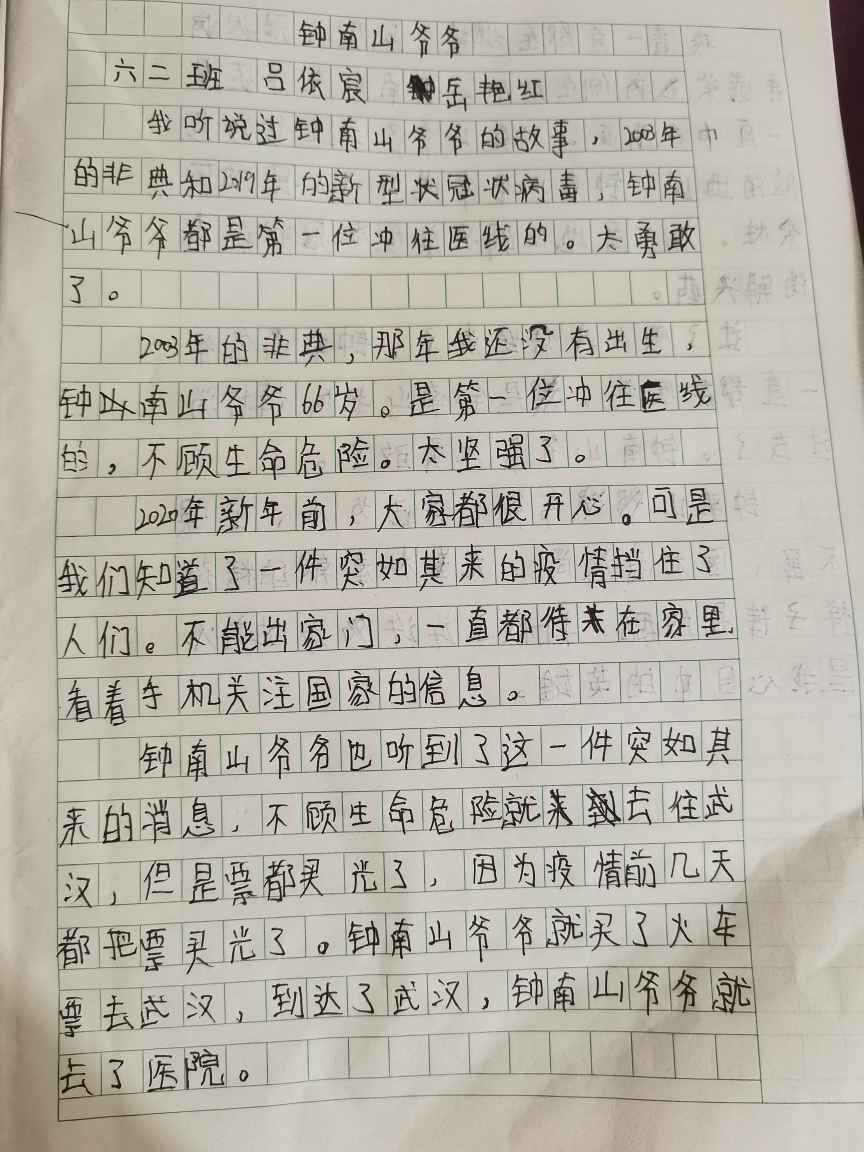 钟南山爷爷
六二班 吕依宸 岳艳红
我听说过钟南山爷爷的故事，2003年
的非典和2019年的新型状冠状病毒，钟南
山爷爷都是第一位冲住医线的。太勇敢
了。
2003年的非典，那年我还没有出生，
钟南山爷爷66岁。是第一位冲往医线
的，不顾生命危险。太坚强了。
2020年新年前，大家都很开心。可是
我们知道了一件突如其来的疫情挡住了
人们。不能出家门，一直都待在家里
看着手机关注国家的信息。
钟南山爷爷也听到了这一件突如其
来的消息，不顾生命危险就去住武
汉，但是票都买光了，因为疫情前几天
都把票买光了。钟南山爷爷就买了火车
票去武汉，到达了武汉，钟南山爷爷就
去了医院。